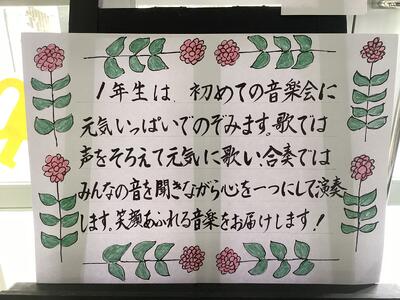 1年生は、初めての音楽会に
元気いっぱいでのぞみます。歌では
声をそろえて元気に歌い、合奏では
みんなの音を聞きながら心を一つにして演奏
します。笑顔あふれる音楽をお届けします！